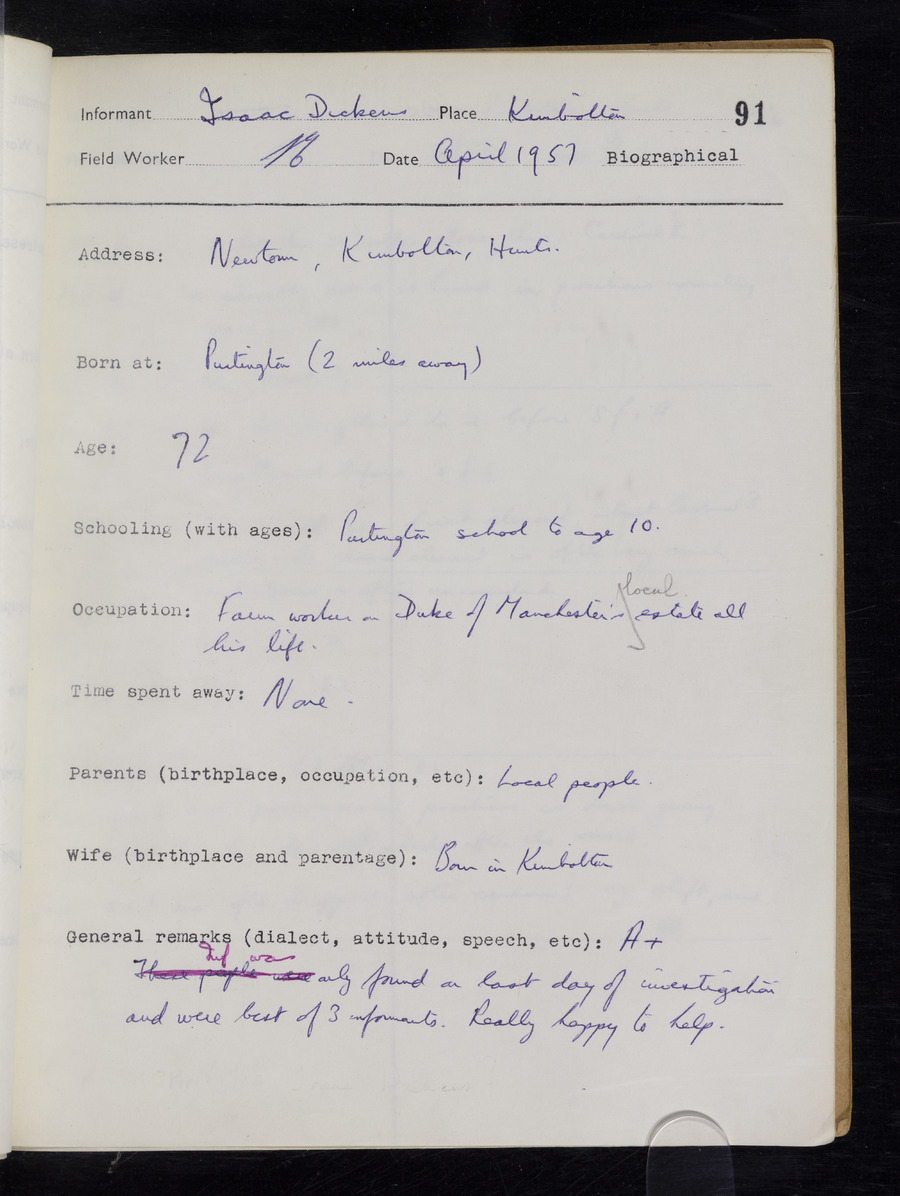 Informant Isaac Dickens Place Kimbolton 91
Field Worker Date April 1957 Biographical
Address: Newtown, Kimbolton, Hunts.
Born at: Pertington (2 miles away)
Age: 72
Schooling (with ages): Pertington school to age 10.
local
Occupation: Farm worker on Duke of Manchester's estate all
his life.
Time spent away: None.
Parents (birthplace, occupation, etc): Local people.
Wife (birthplace and parentage): Born in Kimbolton
General remarks (dialect, attitude, speech, etc): A+
Inf. was
These people were only found on last day of investigation
and were best of 3 informants. Really happy to help.